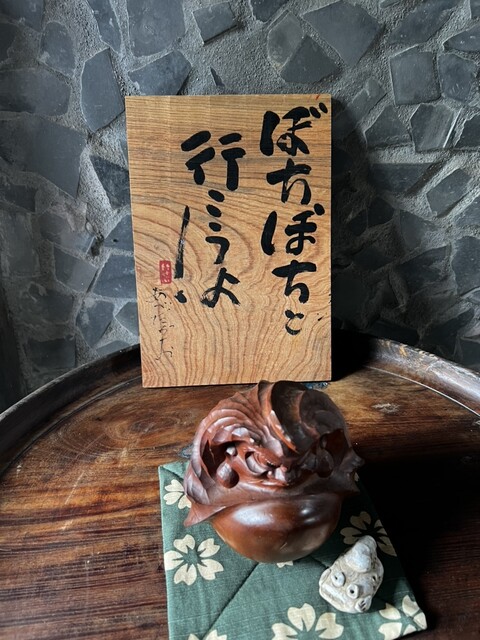 ぼちぼちと
行こうよ!